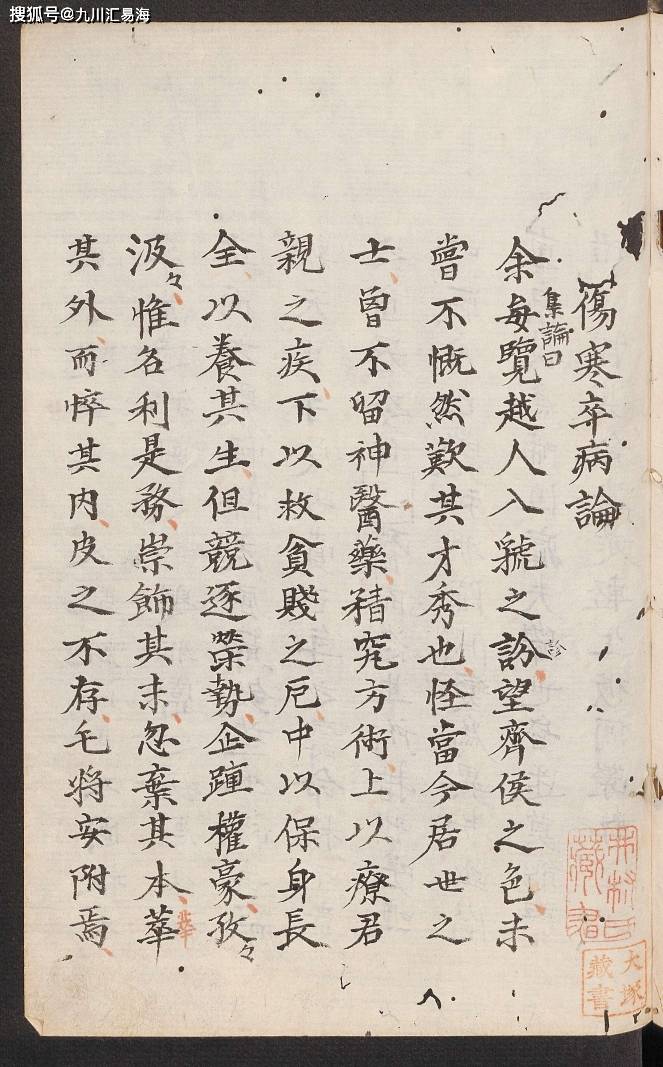 搜狐号@九川汇易海
傷寒卒病論
集論曰
余每覽越人入虢之訜望齊侯之色未
診
嘗不慨然歎其才秀也怪當今居世之
士曾不留神醫藥𥡴究方術上以療君
親之疾下以救貧賤之厄中以保身長
全以養其生但競逐榮勢企踵權豪孜々
汲々惟名利是務崇飾其末忽棄其本華
華
其外而悴其内皮之不存毛將安附焉
藏書
大塚
藏書